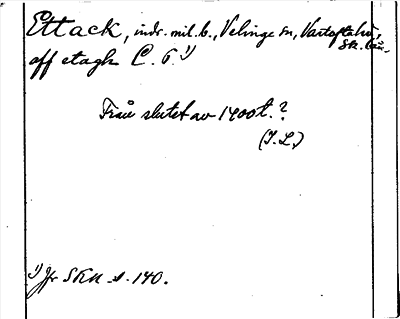 Ettack, indr. mil. b., Velinge sn, Vartofta hd,
Sk. län.
off etagh C. 6.¹⁾
Från slutet av 1400t.?
(I.L.)
¹⁾ Jr SRU s. 140.